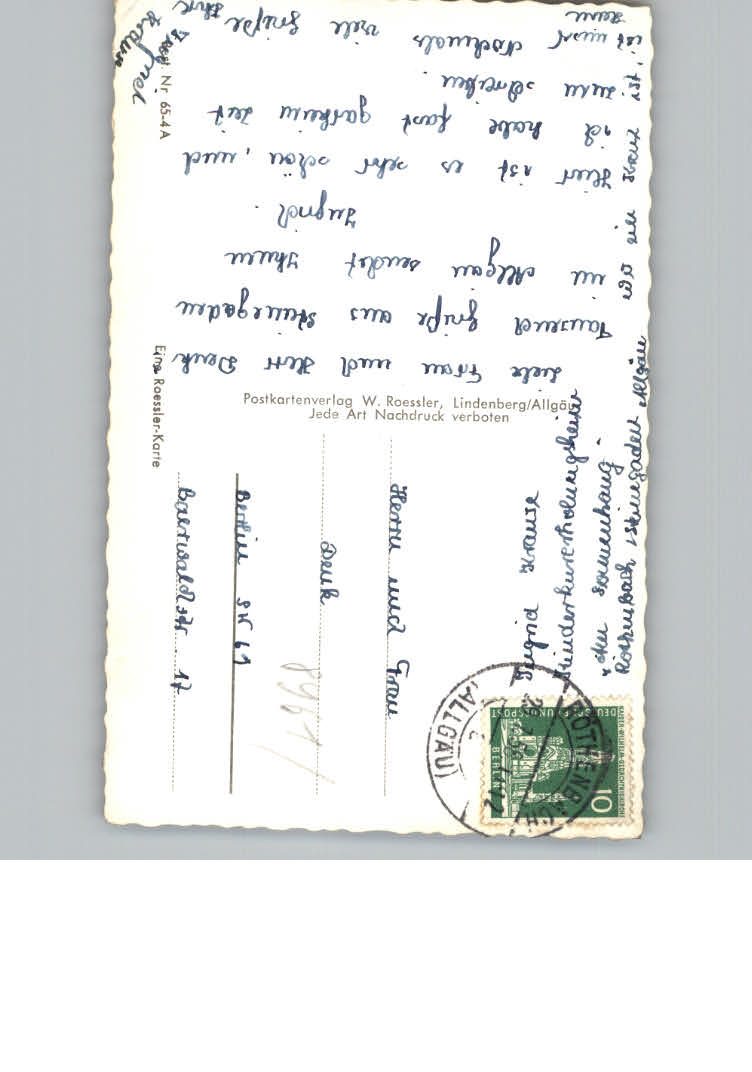 Liebe Frau und Herr Denk
Tausend Grüße aus
im Allgäu sendet Ihnen
Ingrid.
Hier ist es sehr schön, und
ich habe fast garkeine Zeit
zum schreiben.
Nochmals viele Grüße Ihre
Ingrid
Eine Roessler-Karte
Nr 65-4 A
Postkartenverlag W. Roessler, Lindenberg/Allgäu
Jede Art Nachdruck verboten
Ingrid Krause
Kinderkurerholungsheim
Röthenbach Allgäu
Herrn und Frau
Denk
Berlin SW 61
Baerwaldstr. 17
RÖTHENBACH
(ALLGÄU)
DEUTSCHE BUNDESPOST
BERLIN
KAISER-WILHELM-GEDÄCHTNISKIRCHE
10